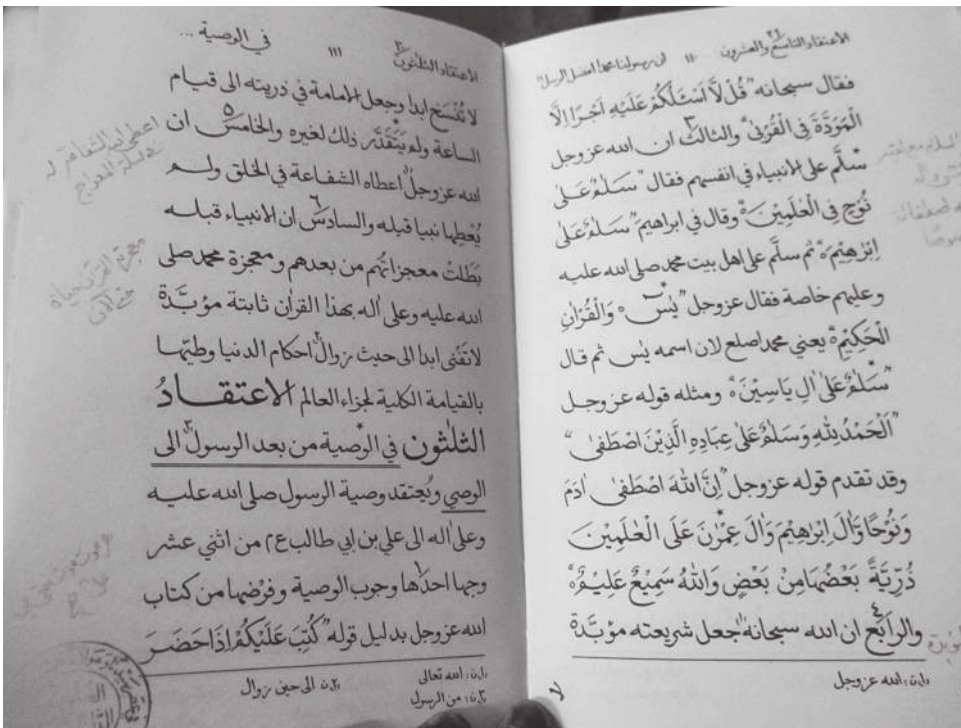 الاعتقاد التاسع والعشرون ١١٠ ان رسولنا محمدا افضل الرسل
فقال سبحانه "قُلْ لَّا اَسْـَٔلُكُمْ عَلَيْهِ اَجْرًا اِلَّا
الْمَوَدَّةَ فِي الْقُرْبٰى" والثالث ان الله عز وجل
سلَّم على الانبياء في انفسهم فقال "سَلٰمٌ عَلٰى
نُوْحٍ فِي الْعٰلَمِيْنَ" وقال في ابراهيم "سَلٰمٌ عَلٰى
اِبْرٰهِيْمَ" ثم سلَّم على اهل بيت محمد صلى الله عليه
وعليهم خاصة فقال عز وجل "يٰسٓ وَالْقُرْاٰنِ
الْحَكِيْمِ" يعني محمدا صلع لان اسمه يٰس ثم قال
"سَلٰمٌ عَلٰى اٰلِ يَاسِيْنَ" ومثله قوله عز وجل
"اَلْحَمْدُ لِلّٰهِ وَسَلٰمٌ عَلٰى عِبَادِهِ الَّذِيْنَ اصْطَفٰى"
وقد تقدم قوله عز وجل "اِنَّ اللّٰهَ اصْطَفٰى اٰدَمَ
وَنُوْحًا وَّاٰلَ اِبْرٰهِيْمَ وَاٰلَ عِمْرٰنَ عَلَى الْعٰلَمِيْنَ
ذُرِّيَّةً بَعْضُهَا مِنْ بَعْضٍ وَاللّٰهُ سَمِيْعٌ عَلِيْمٌ"
والرابع ان الله سبحانه جعل شريعته مؤبَّدة
(١) ن: الله عز وجل
الاعتقاد الثلثون ١١١ في الوصية ...
لا تُنْسَخ ابدا وجعل الامامة في ذريته الى قيام
الساعة ولم يَتَقَدَّر ذلك لغيره والخامس ان
الله عز وجل اعطاه الشفاعة في الخلق ولم
يُعْطِها نبيا قبله والسادس ان الانبياء قبله
بَطَلَتْ معجزاتهم من بعدهم ومعجزة محمد صلى
الله عليه وعلى اٰله بهذا القراٰن ثابتة مؤبَّدة
لا تَفْنٰى ابدا الى حيث زوال احكام الدنيا وطيّها
بالقيامة الكلية لجزاء العالم الاعتقادُ
الثلٰثون في الوصية من بعد الرسول الى
الوصي ويُعتقد وصية الرسول صلى الله عليه
وعلى اٰله الى علي بن ابي طالب ع م من اثني عشر
وجها احدُها وجوب الوصية وفرْضها من كتاب
الله عز وجل بدليل قوله "كُتِبَ عَلَيْكُمْ اِذَا حَضَرَ
(١) ن: الله تعالى (٢) ن الى حين زوال
(٣) ن: من الرسول